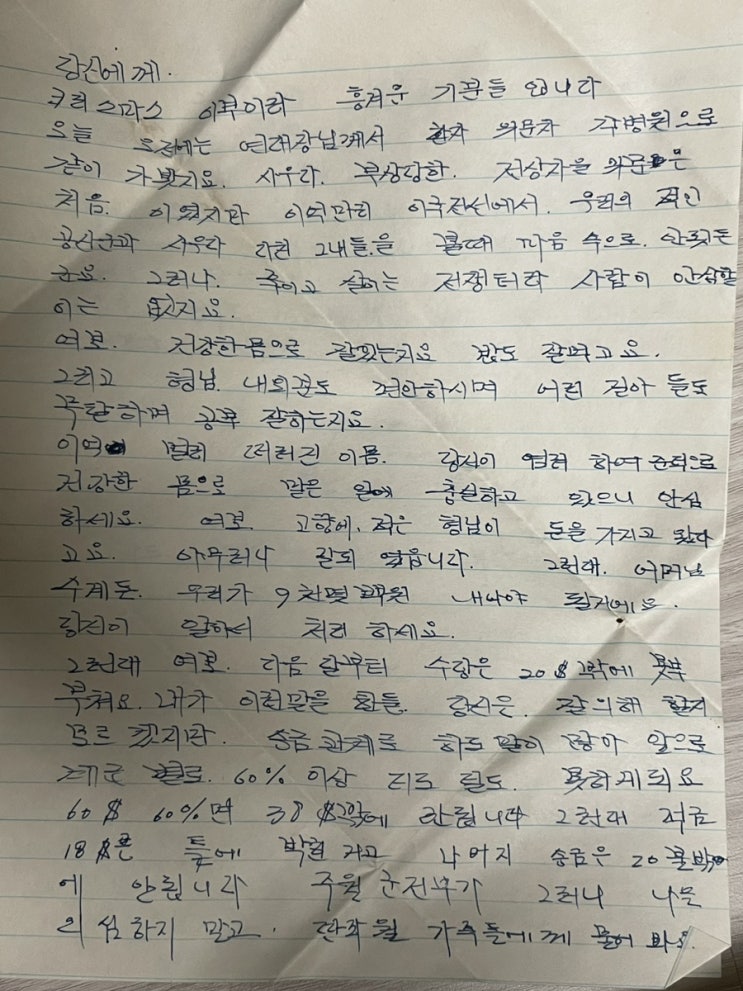 당신에게.
크리스마스 이부이라 흥겨운 기분들 입니다
오늘 오전에는 연대장님께서 환자 위문차 주병원으로
같이 가 봣지요. 사우다. 부상당한. 전상자을 위문은
처음. 이였지만 이역만리 이국전선에서. 우리의 적인
공산군과 사우다 다친 그네들을 볼때 마음 속으로. 안됫든
군요. 그러나. 죽이고 살이는 전쟁터라 사람이 안심할
이는 없지요.
여보. 건강한 몸으로 잘있는지요 밥도 잘먹고요.
그리고 형님. 내외분도 편안하시며 어린 질아 들도
무탈하며 공부 잘하는지요.
이역 멀리 떠러진 이몸. 당신이 염려 하여 준덕으로
건강한 몸으로 맡은 일에 충실하고 있으니 안심
하세요. 여보. 고향에. 저는 형님이 돈을 가지고 왔다
고요. 아무러나 잘되 었읍니다. 그런대. 어머님
수계돈. 우리가 9천몇 백원 내나야 될거에요.
당신이 알아서 처리 하세요.
그런대 여보. 다음 달부터 수당은 20$ 밖에 못부
부쳐요. 내가 이런말을 한들. 당신은. 잘 의해 할지
모르 겟지만. 송금 관계로 하도 말이 많아 앞으로
계급 별로. 60% 이상 더도 덜도. 못하게되요
60$ 60%면 38$밖에 안됩니다 그런대 적금
18$은 틀에 박힌 거고 나머지 송금은 20불밖
에 안됩니다 주월 군전부가 그러니 나를
의심하지 말고. 딴 파월 가족들에게 물어 봐요.